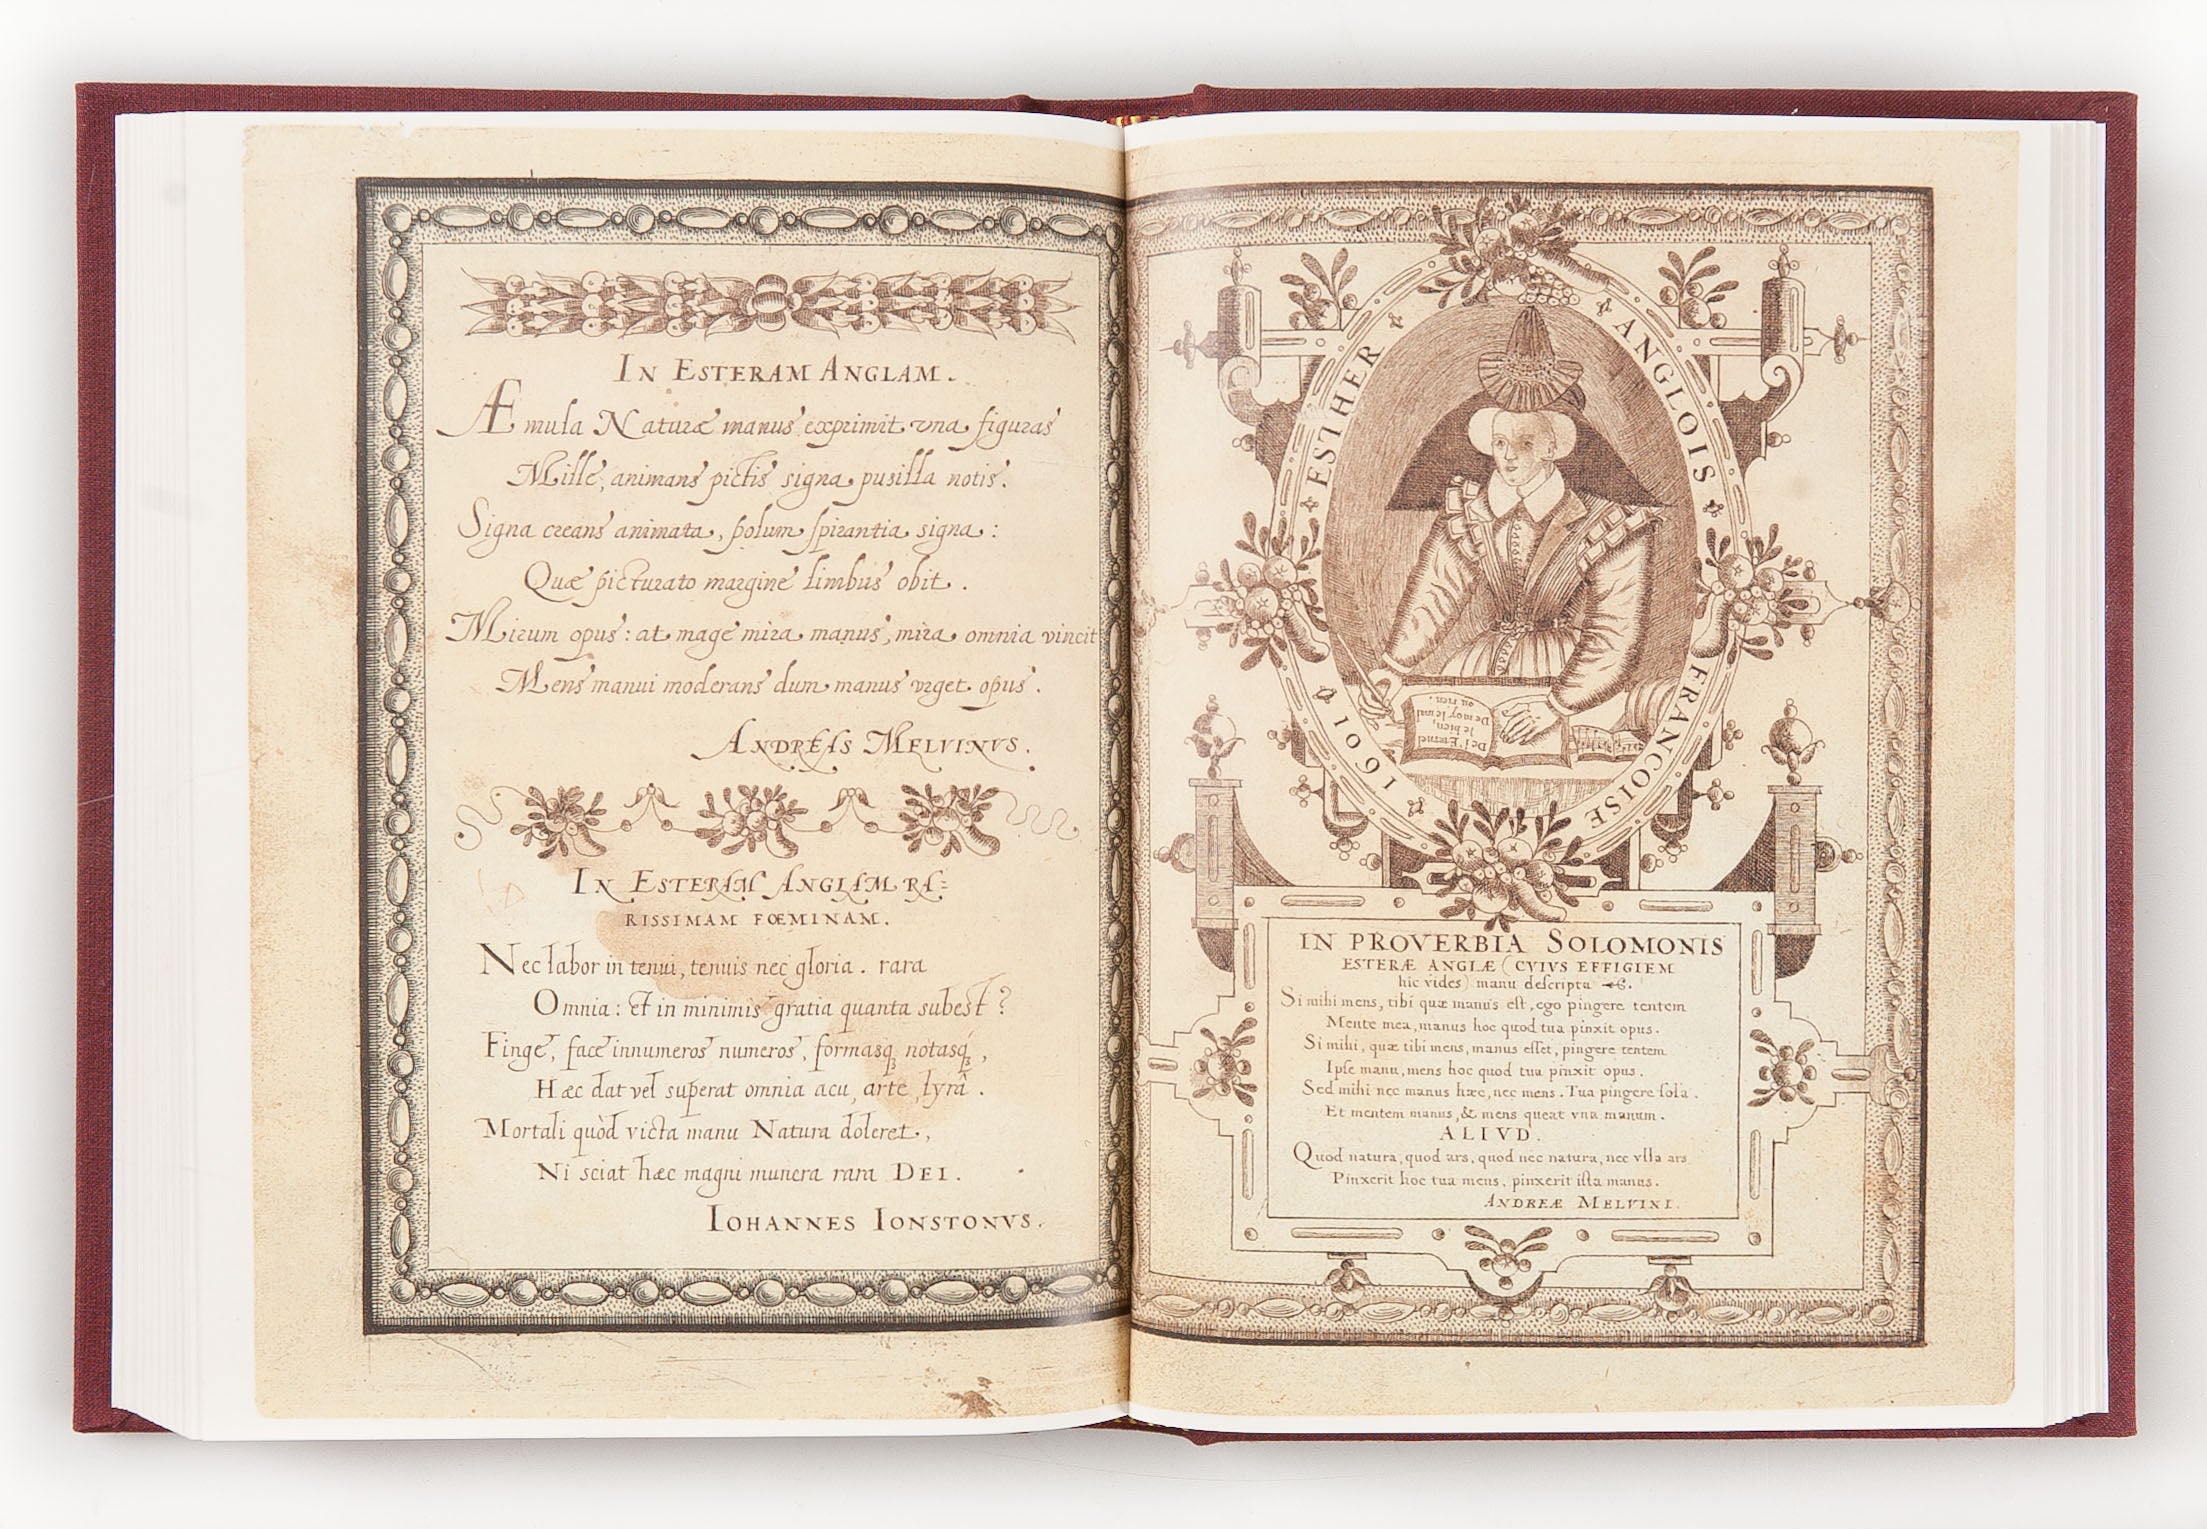 IN ESTERAM ANGLAM.
Æmula Naturæ manus exprimit vna figuras
Mille, animans pictis signa pusilla notis.
Signa creans animata, polum spirantia signa:
Quæ picturato margine limbus obit.
Mirum opus: at mage mira manus, mira omnia vincit
Mens manui moderans dum manus vrget opus.
ANDREAS MELVINVS.
IN ESTERAM ANGLAM RA=
RISSIMAM FŒMINAM.
Nec labor in tenui, tenuis nec gloria. rara
Omnia: et in minimis gratia quanta subest?
Finge, face innumeros numeros, formasq₃ notasq₃,
Hæc dat vel superat omnia acu, arte, lyrâ.
Mortali quòd victa manu Natura doleret,
Ni sciat hæc magni munera rara DEI.
IOHANNES IONSTONVS.
ESTHER ANGLOIS FRANCOISE 1601
De l'Eternel
le bien,
De moy le mal
ou rien.
IN PROVERBIA SOLOMONIS
ESTERÆ ANGLÆ (CVIVS EFFIGIEM
hic vides) manu descripta.
Si mihi mens, tibi quæ manus est, ego pingere tentem
Mente mea, manus hoc quod tua pinxit opus.
Si mihi, quæ tibi mens, manus esset, pingere tentem
Ipse manu, mens hoc quod tua pinxit opus.
Sed mihi nec manus hæc, nec mens. Tua pingere sola.
Et mentem manus, & mens queat vna manum.
ALIVD.
Quod natura, quod ars, quod nec natura, nec vlla ars
Pinxerit hoc tua mens, pinxerit ista manus.
ANDREÆ MELVINI.